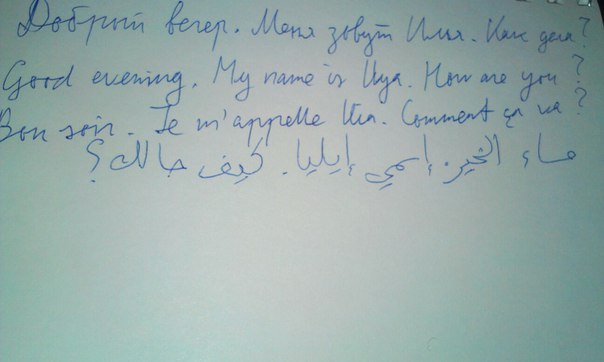 Добрый вечер. Меня зовут Илья. Как дела?
Good evening. My name is Ilya. How are you?
Bon soir. Je m'appelle Ilia. Comment ça va?
مساء الخير. إسمي إيليا. كيف حالك؟